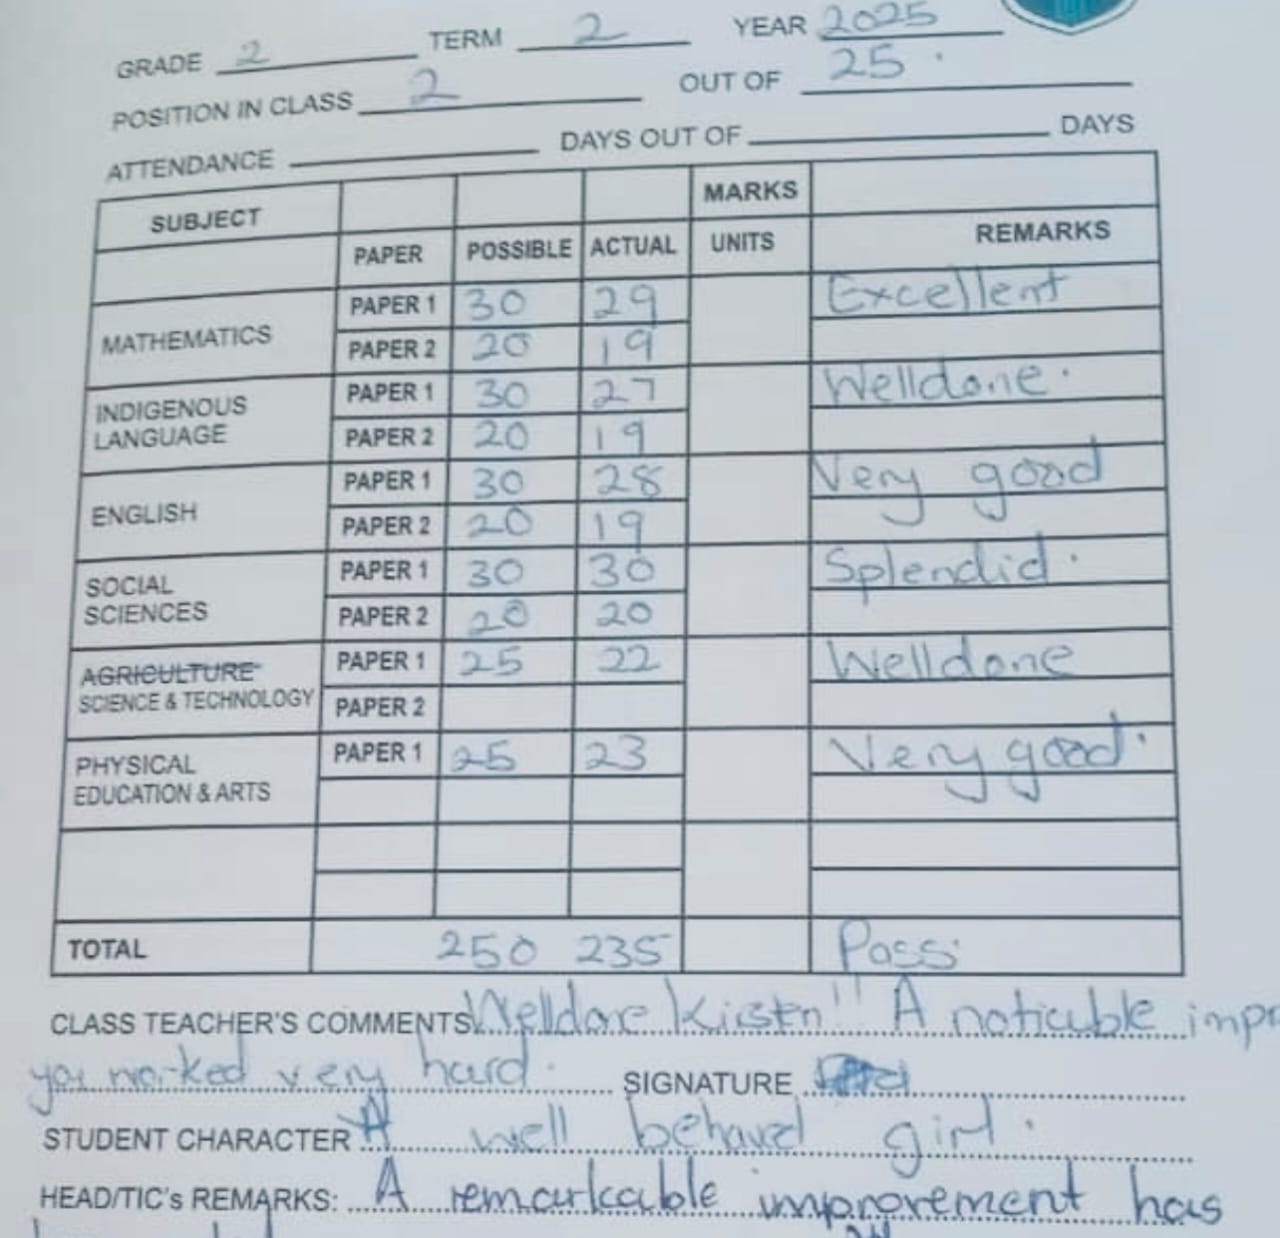 GRADE 2 TERM 2 YEAR 2025
POSITION IN CLASS 2 OUT OF 25.
ATTENDANCE DAYS OUT OF DAYS
SUBJECT MARKS
PAPER POSSIBLE ACTUAL UNITS REMARKS
MATHEMATICS PAPER 1 30 29 Excellent
PAPER 2 20 19
INDIGENOUS LANGUAGE PAPER 1 30 27 Welldone.
PAPER 2 20 19
ENGLISH PAPER 1 30 28 Very good
PAPER 2 20 19
SOCIAL SCIENCES PAPER 1 30 30 Splendid.
PAPER 2 20 20
AGRICULTURE SCIENCE & TECHNOLOGY PAPER 1 25 22 Welldone
PAPER 2
PHYSICAL EDUCATION & ARTS PAPER 1 25 23 Very good.
TOTAL 250 235 Pass
CLASS TEACHER'S COMMENTS Welldone Kirsten!! A noticable impr
you worked very hard. SIGNATURE
STUDENT CHARACTER A well behaved girl.
HEAD/TIC's REMARKS: A remarkable improvement has